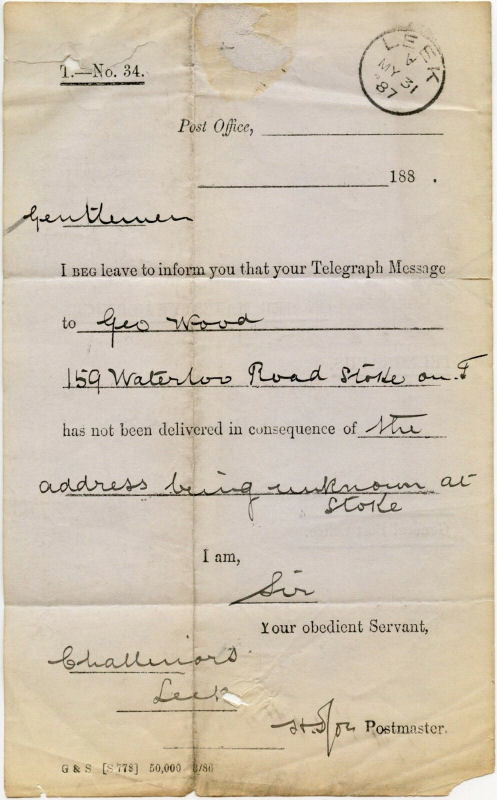 T.—No. 34.
LEEK
A
MY 31
87
Post Office,
188 .
Gentlemen
I BEG leave to inform you that your Telegraph Message
to Geo Wood
159 Waterloo Road Stoke on. T
has not been delivered in consequence of the
address being unknown at
Stoke
I am,
Sir
Your obedient Servant,
Challinors
Leek
Postmaster.
G & S [S 778] 50,000 /86